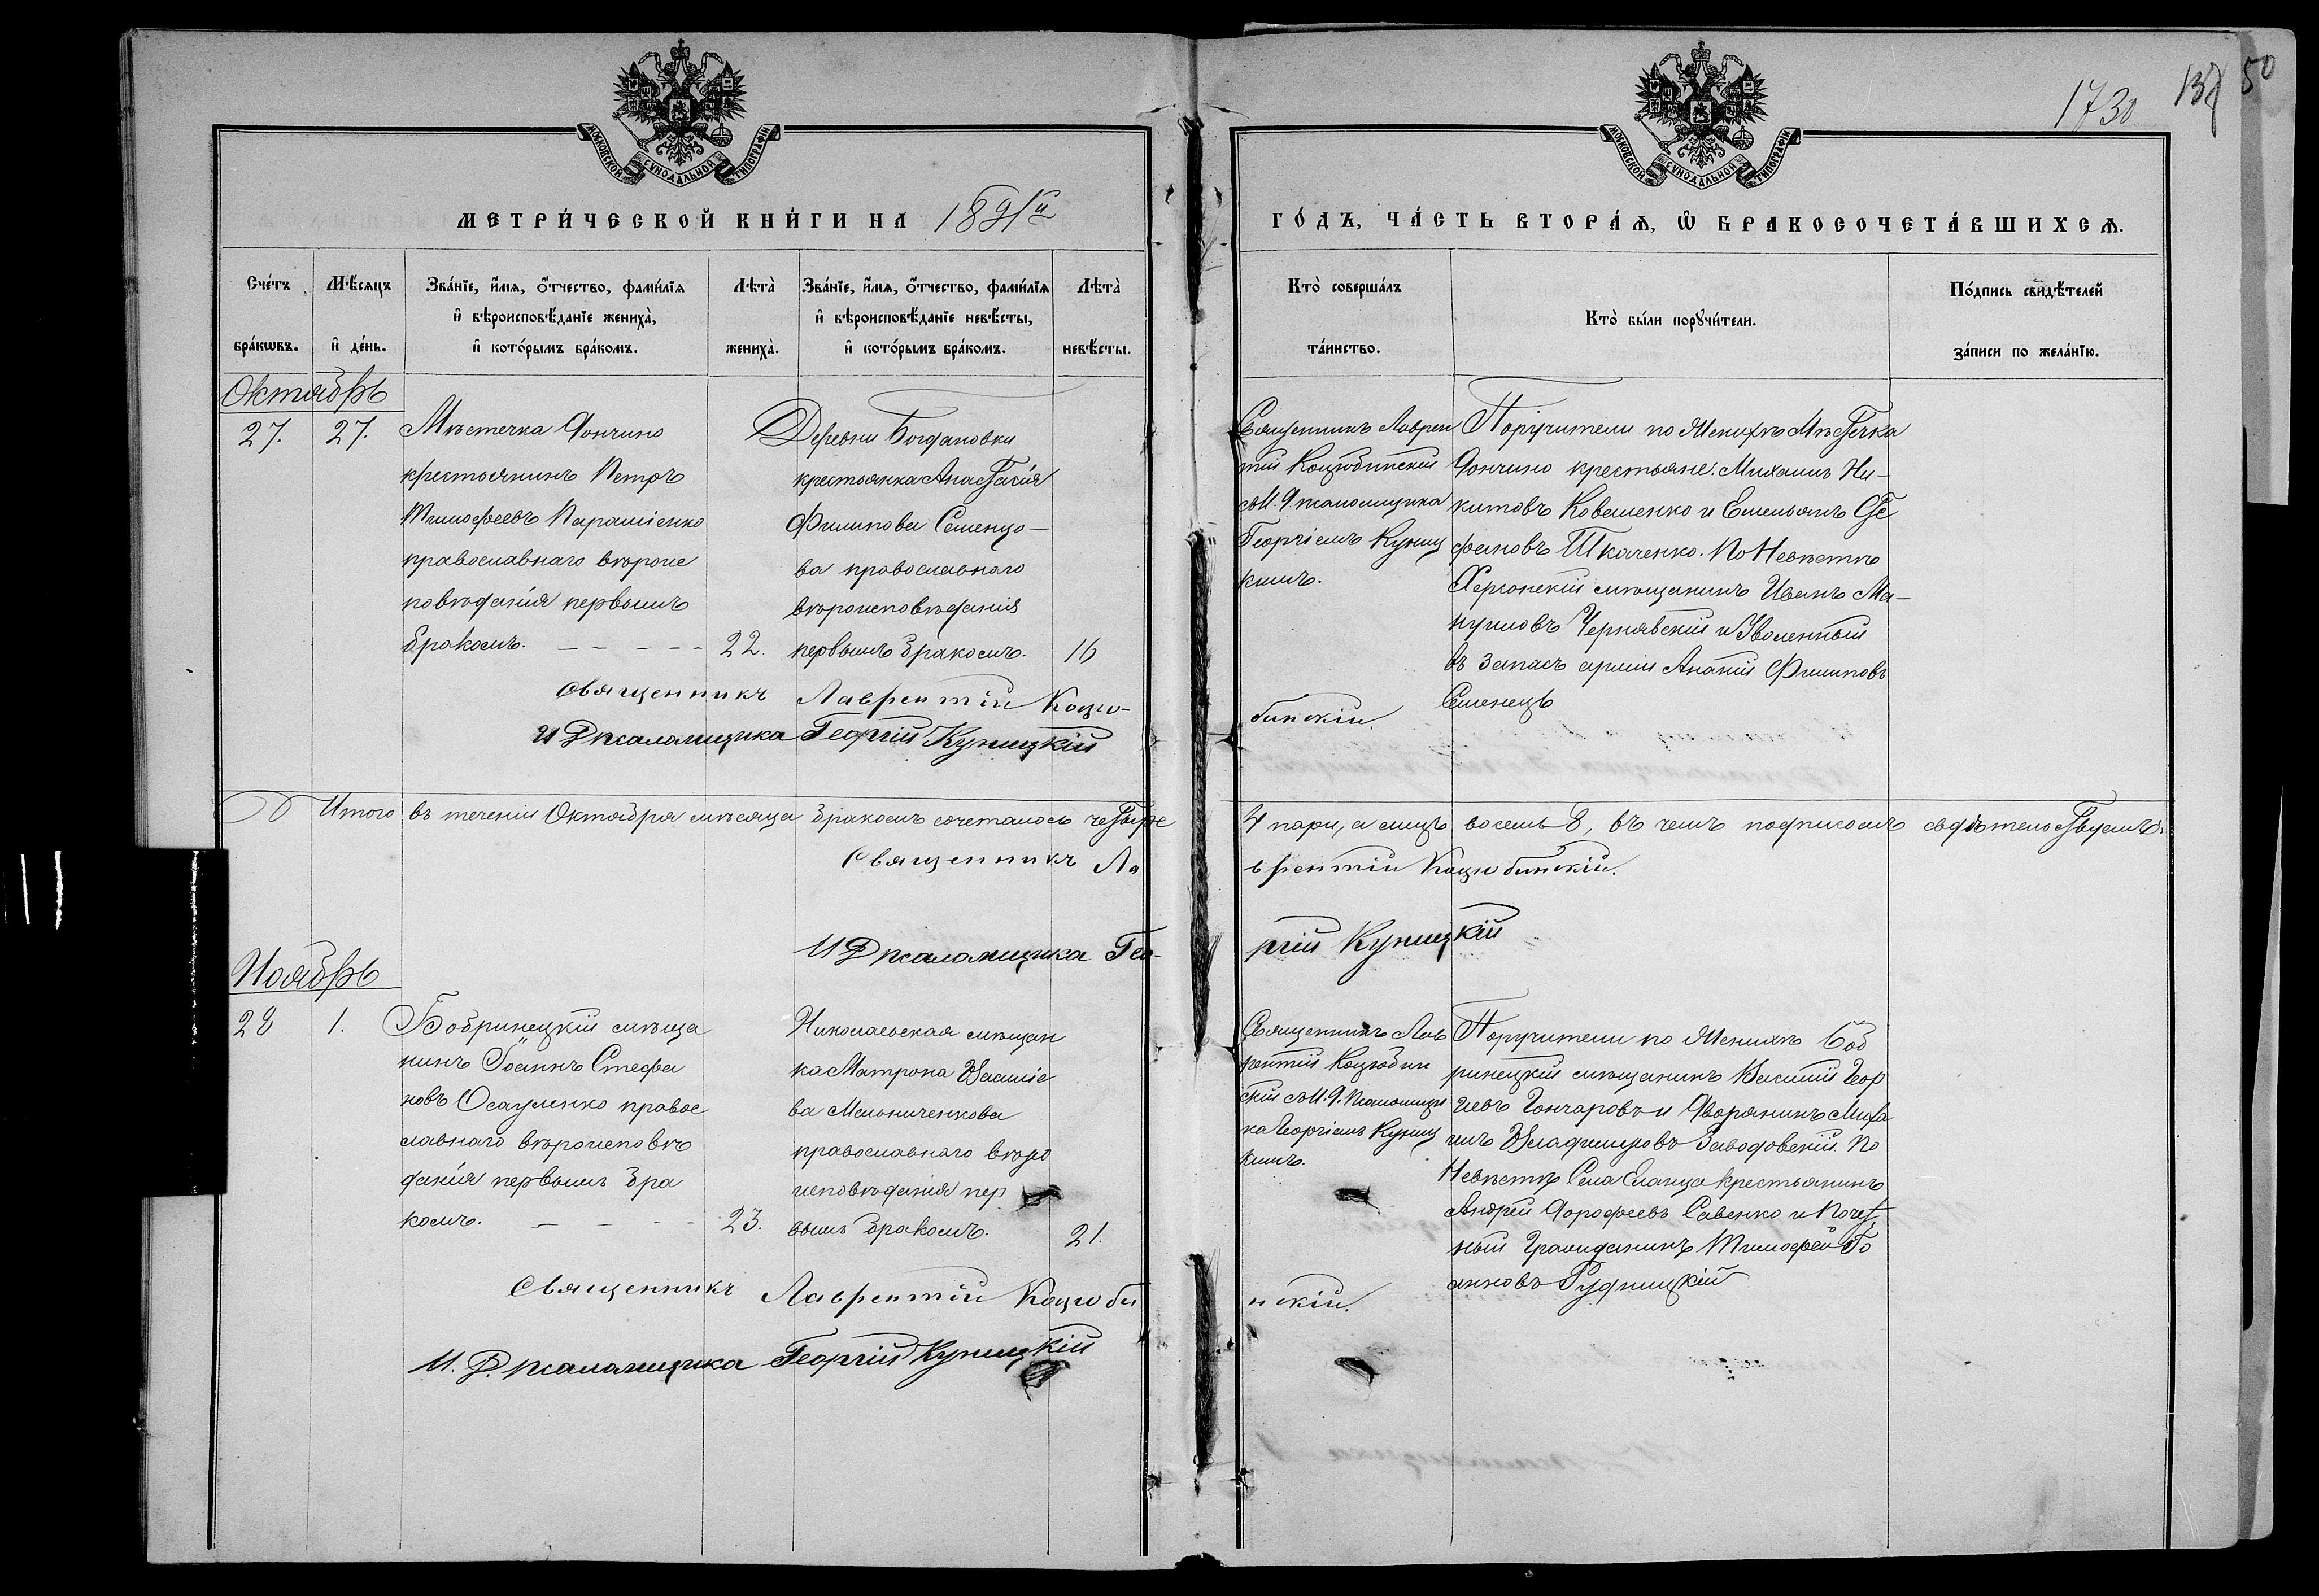 1730
137
50
МОСКОВСКОЙ СУНОДАЛЬНОЙ ТИПОГРАФІИ
МОСКОВСКОЙ СУНОДАЛЬНОЙ ТИПОГРАФІИ
МЕТРИ́ЧЕСКОЙ КНИ́ГИ НА 1891й
ГО́ДЪ, ЧА́СТЬ ВТОРА́Ѧ, Ѽ БРАКОСОЧЕТА́ВШИХСѦ.
Сче́тъ бра́кѡвъ.
Мѣ́сяцъ и҆ де́нь.
Зва́нїе, и҆́мѧ, ѻ҆́тчество, фами́лїѧ
и҆ вѣроисповѣ́данїе жениха̀,
и҆ кото́рымъ бра́комъ.
Лѣта̀ жениха̀.
Зва́нїе, и҆́мѧ, ѻ҆́тчество, фами́лїѧ
и҆ вѣроисповѣ́данїе невѣ́сты,
и҆ кото́рымъ бра́комъ.
Лѣта̀ невѣ́сты.
Кто̀ соверша́лъ
та́инство.
Кто̀ бы́ли порꙋчи́тели.
По́дпись свидѣ́телей
за́писи по жела́нїю.
Октябрь
27.
27.
Мѣстечка Дончино
крестьянинъ Петръ
Тимофеевъ Парашіенко
православнаго вѣроис
повѣданія первымъ
бракомъ.
22.
Деревни Богдановки
крестьянка Анастасія
Филипова Семенцо-
ва православнаго
вѣроисповѣданія
первымъ бракомъ.
16
Священникъ Лаврен
тій Коцюбинскій
съ И. Д. псаломщика
Георгіемъ Куниц
кимъ.
Поручители по Женихѣ Мѣстечка
Дончино крестьяне. Михаилъ Ни-
китовъ Коваленко и Емельянъ Сте
фановъ Ткаченко. По Невѣстѣ
Херсонскій мѣщанинъ Иванъ Ма-
нуиловъ Чернявскій и Уволенный
въ запасъ арміи Ананій Филиповъ
Семенецъ
Священникъ Лаврентій Коцю-
бинскій.
И Д псаломщика Георгій Куницкій
Итого въ теченіи Октября мѣсяца бракомъ сочеталось четыре
4 пары, а лицъ восемь 8, въ чемъ подписомъ свѣдѣтельствуемъ.
Священникъ Ла
врентій Коцюбинскій.
И Д псаломщика Гео-
ргій Куницкій
Ноябрь
28
1.
Бобринецкій мѣща
нинъ Іоаннъ Стефа
новъ Осауленко правос
лавнаго вѣроисповѣ
данія первымъ бра
комъ.
23.
Николаевская мѣщан
ка Матрона Василіе
ва Мельниченкова
православнаго вѣро
исповѣданія пер
вымъ бракомъ.
21.
Священникъ Лав
рентій Коцюбин
скій съ И. Д. Псаломщи
ка Георгіемъ Куниц
кимъ.
Поручители по Женихѣ Боб
ринецкій мѣщанинъ Василій Геор
гіевъ Гончаровъ и Дворянинъ Миха
илъ Владимировъ Заводовскій. По
Невѣстѣ Села Еланца крестьянинъ
Андрей Дорофеевъ Савенко и Почет
ный Гражданинъ Тимофей Іо
анновъ Рудницкій
Священникъ Лаврентій Коцюби
нскій.
И. Д. псаломщика Георгій Куницкій